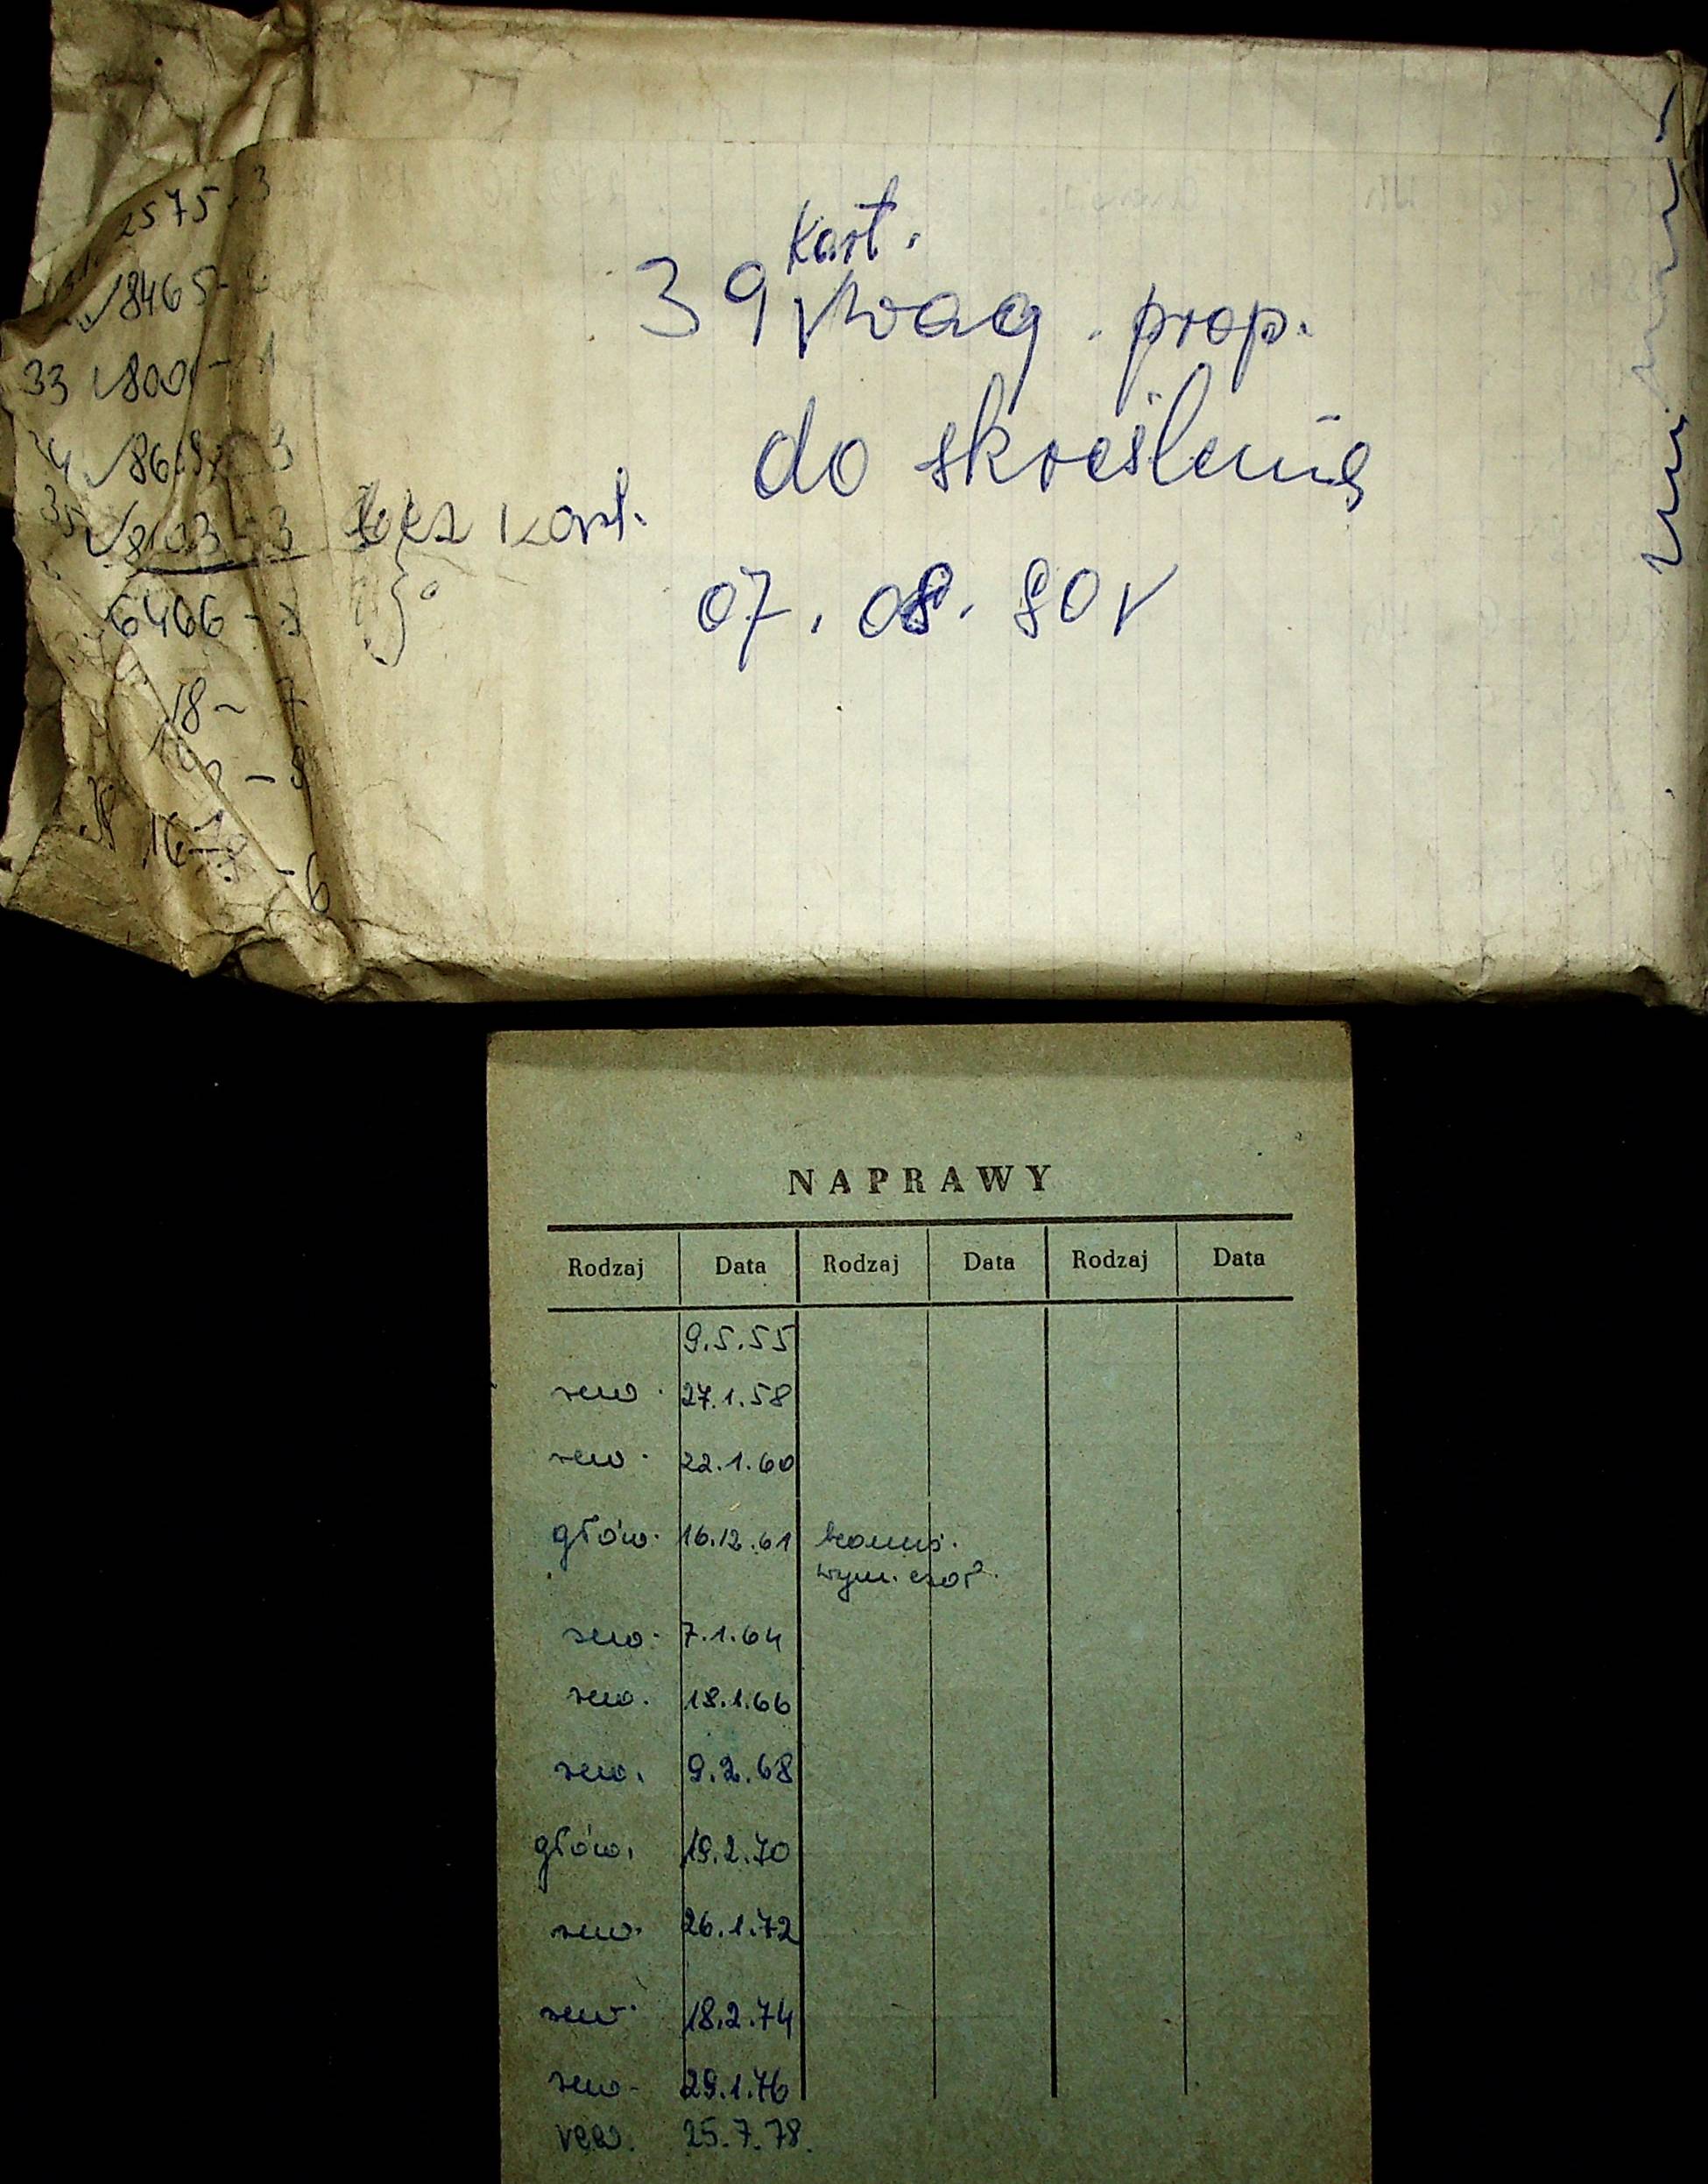 2575-3
8465-
33 800 - 1
6406 -
18- 7
- 6
bez kart.
kart.
39 wag. prop.
do skreślenia
07. 08. 80r
NAPRAWY
Rodzaj Data Rodzaj Data Rodzaj Data
9.5.55
rew. 27.1.58
rew. 22.1.60
głów. 16.12.61
wym. czoł.
rew. 7.1.64
rew. 18.1.66
rew. 9.2.68
głów. 19.2.70
rew. 26.1.72
rew. 18.2.74
rew. 29.1.76
rew. 25.7.78.